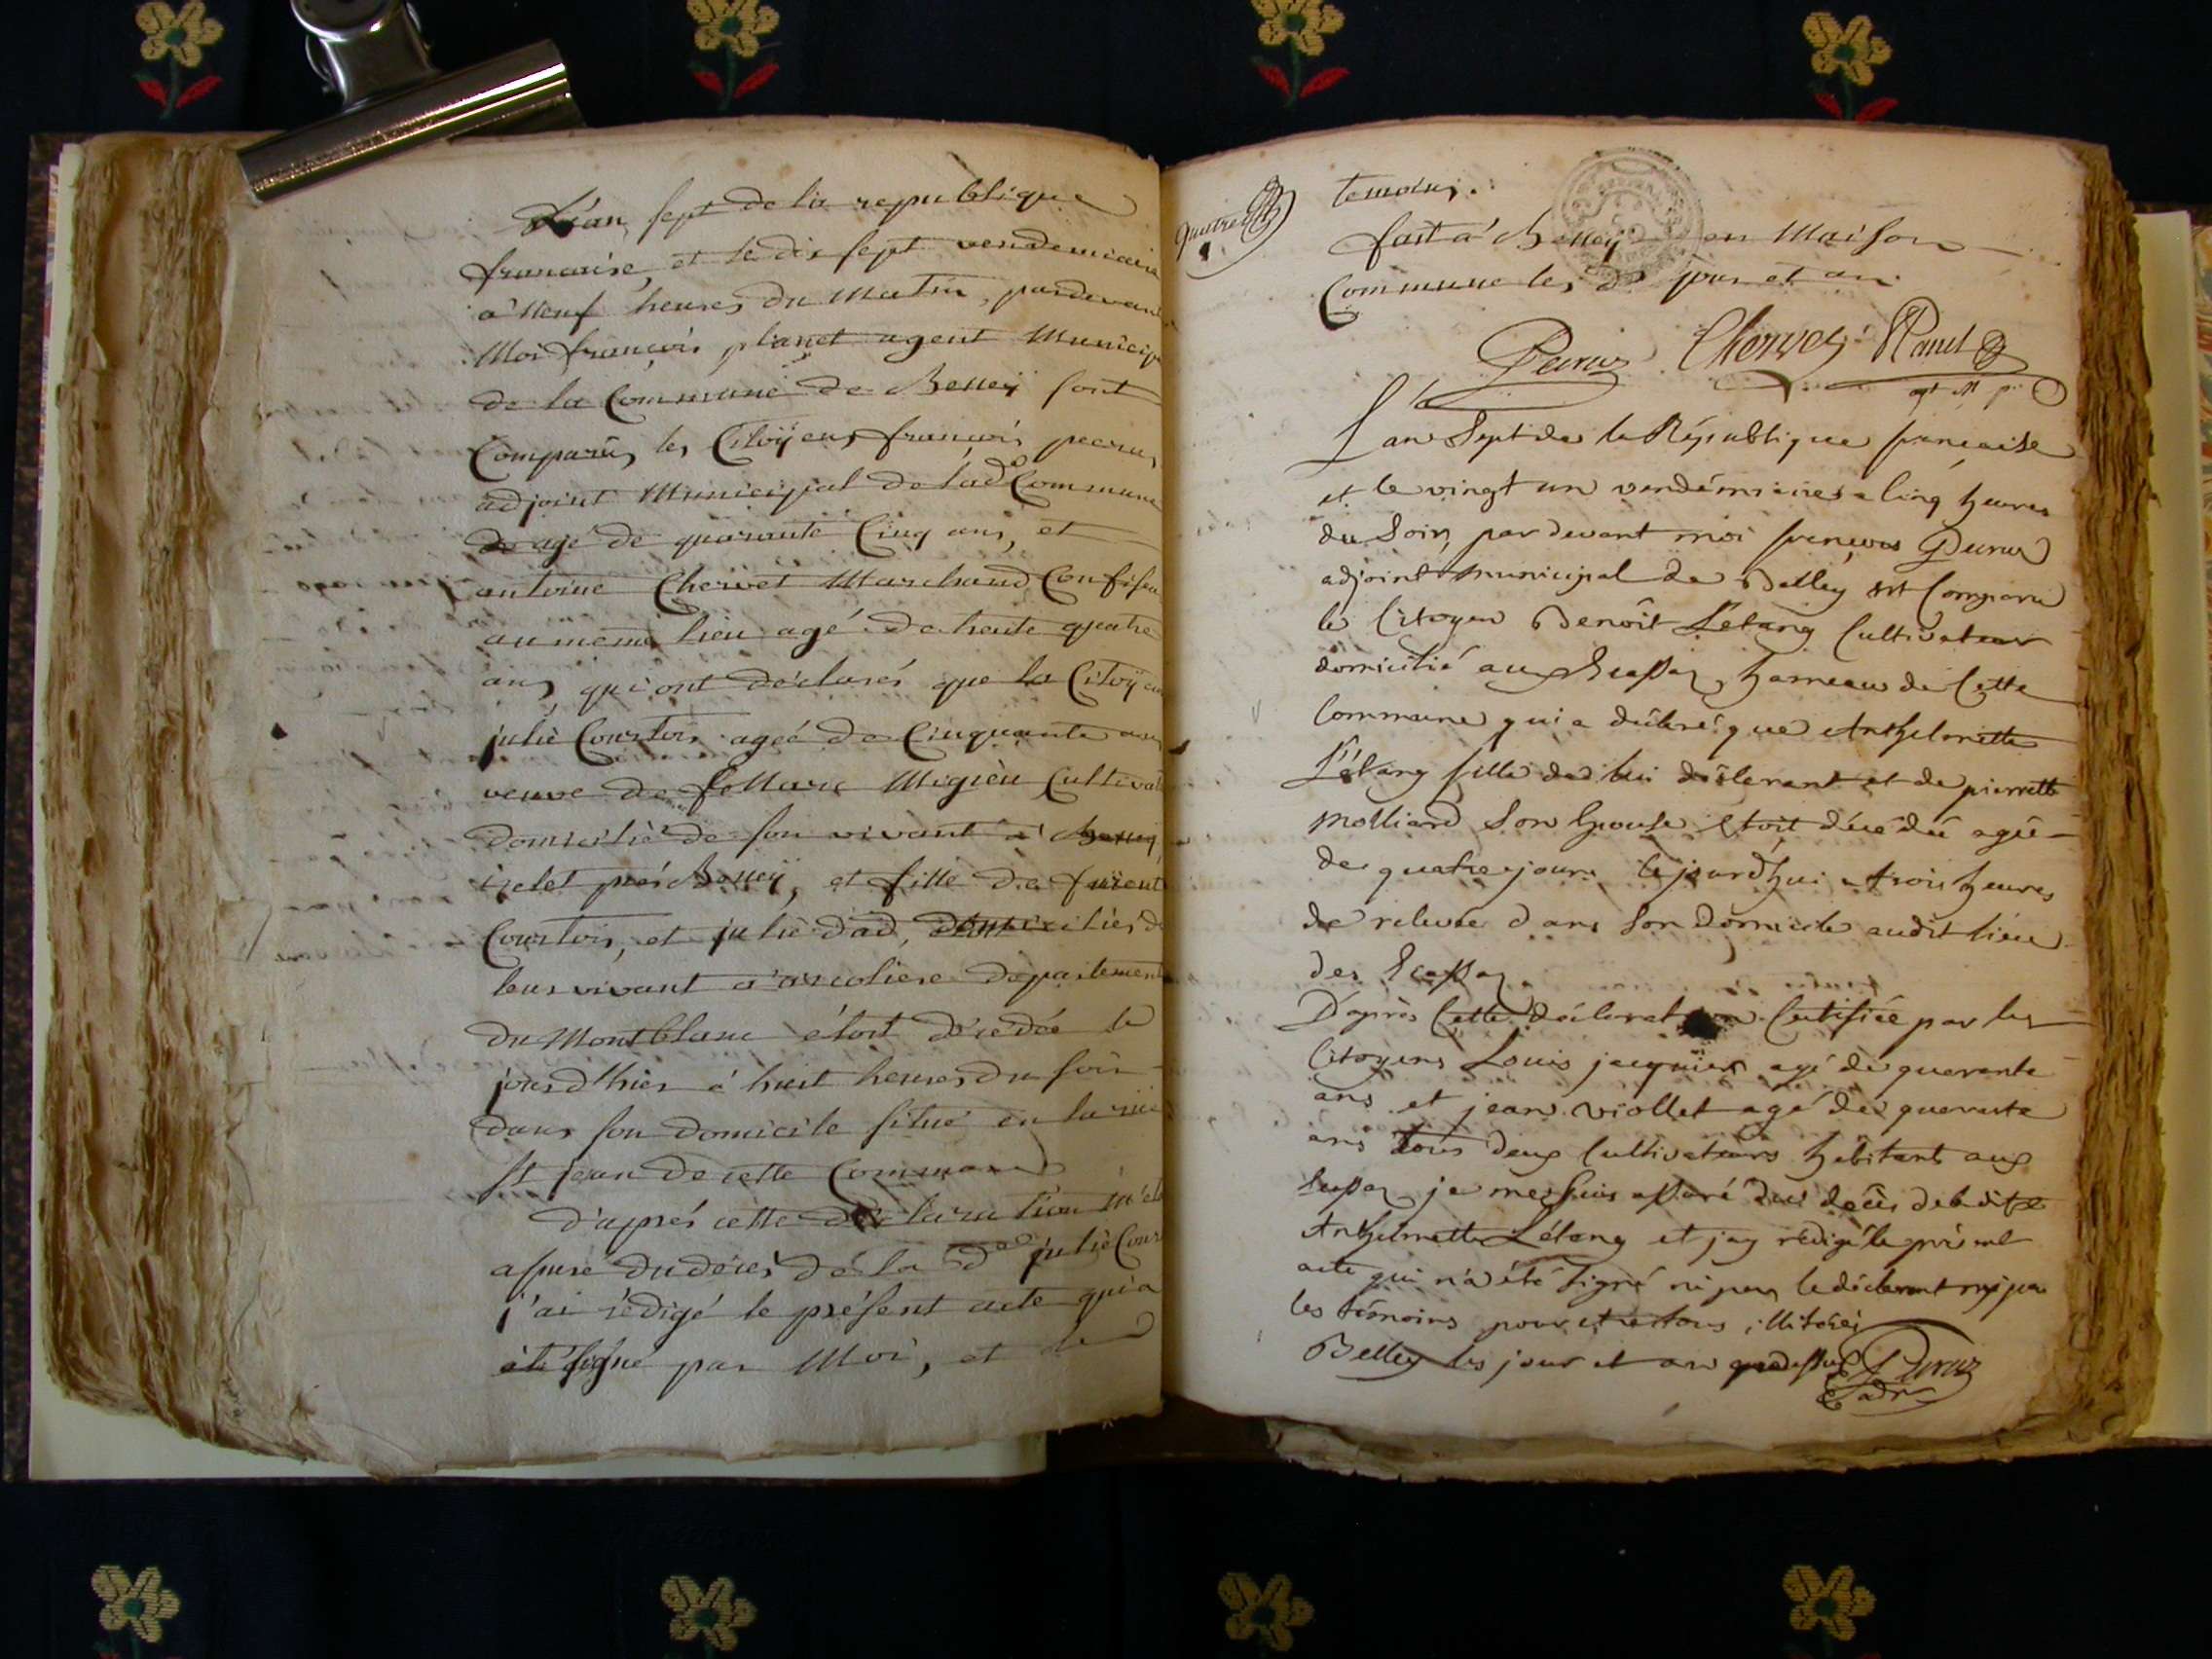 L'an sept de la republique
francaise, et le dix sept vendemiaire
a neuf heures du matin, pardevant
Moi françois planet agent Municip
de la Commune de Belleÿ sont
Comparûs les Citoÿens françois
adjoint Municipal de lad Commune
agé de quarante Cinq ans, et
antoine Chervet Marchand Confiseu
au même lieu agé de trente quatre
ans qui ont déclarés que la Citoÿen
julie Courtois agée de Cinquante ans
veuve de fe Marc Migieu Cultivat
domicilié de son vivant a
près Belleÿ, et fille de
Courtois, et julie domiciliés de
leur vivant a arcoliere département
du Montblanc étoit décédée le
jourd'hier à huit heures du soir
dans son domicile situé en la rue
St jean de cette Commune
d'aprés cette déclaration
assuré du décès de la de julie Cour
j'ai rédigé le présent acte qui a
été signé par Moi, et de
quatre
temoins.
fait a Belleÿ en Maison
Commune les d jour et an
Chervet Planet
agt M p
L'an Sept de la République francaise
et le vingt un vendémiaire a Cinq heures
du Soir, par devant moi françois
adjoint municipal de Belley est Comparu
le Citoyen Benoît Létang Cultivateur
domicilié aux Ecassaz, hameau de Cette
Commune qui a déclaré que Anthelmette
Létang fille de lui déclarant et de pierrette
Molliard Son Epouse étoit décédée agée
de quatre jours Cejourd'hui a trois heures
de relevée dans Son domicile audit lieu
des Ecassaz
D'après Cette déclaration Certifiée par les
Citoyens Louis jacquier agé de quarante
ans et jean viollet agé de quarante
ans tous deux Cultivateurs habitant aux
Ecassaz je me suis assuré du decès de ladite
Anthelmette Létang et jay rédigé le présent
acte qui n'a été Signé ni par le déclarant ny par
les témoins pour etre tous illitérés
Belley les jour et an que dessus
adt